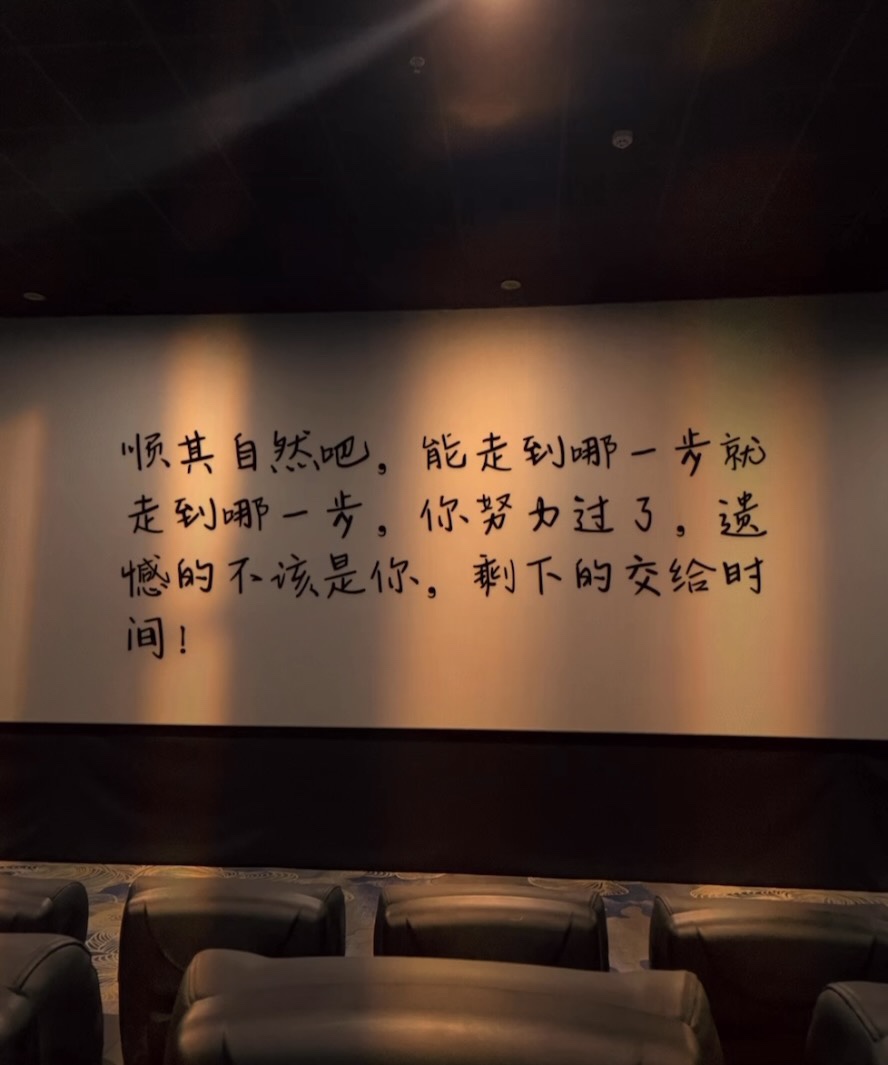 顺其自然吧，能走到哪一步就
走到哪一步，你努力过了，遗
憾的不该是你，剩下的交给时
间！